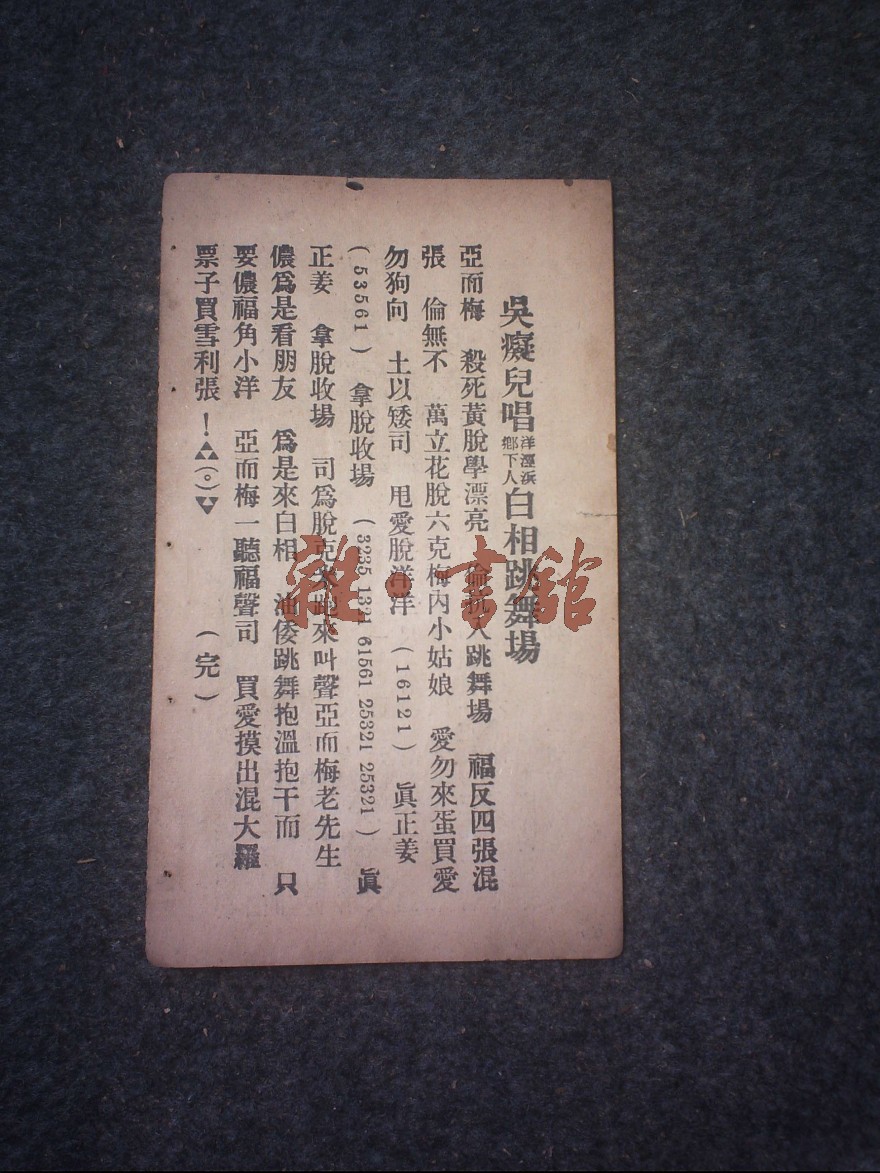 吳癡兒唱洋涇浜鄉下人白相跳舞場
亞而梅 殺死黃脫學漂亮 人跳舞場 福反四張混
張 倫無不 萬立花脫六克梅內小姑娘 愛勿來蛋買愛
勿狗向 土以矮司 甩愛脫洋洋 (16121) 眞正姜
(53561) 拿脫收場 (3235 1321 61561 25321 25321) 眞
正姜 拿脫收場 司爲脫克 跑來叫聲亞而梅老先生
儂爲是看朋友 爲是來白相 油倭跳舞抱溫抱干而 只
要儂福角小洋 亞而梅一聽福聲司 買愛摸出混大羅
票子買雪利張!▲▲(○)▼ (完)
雜·書館